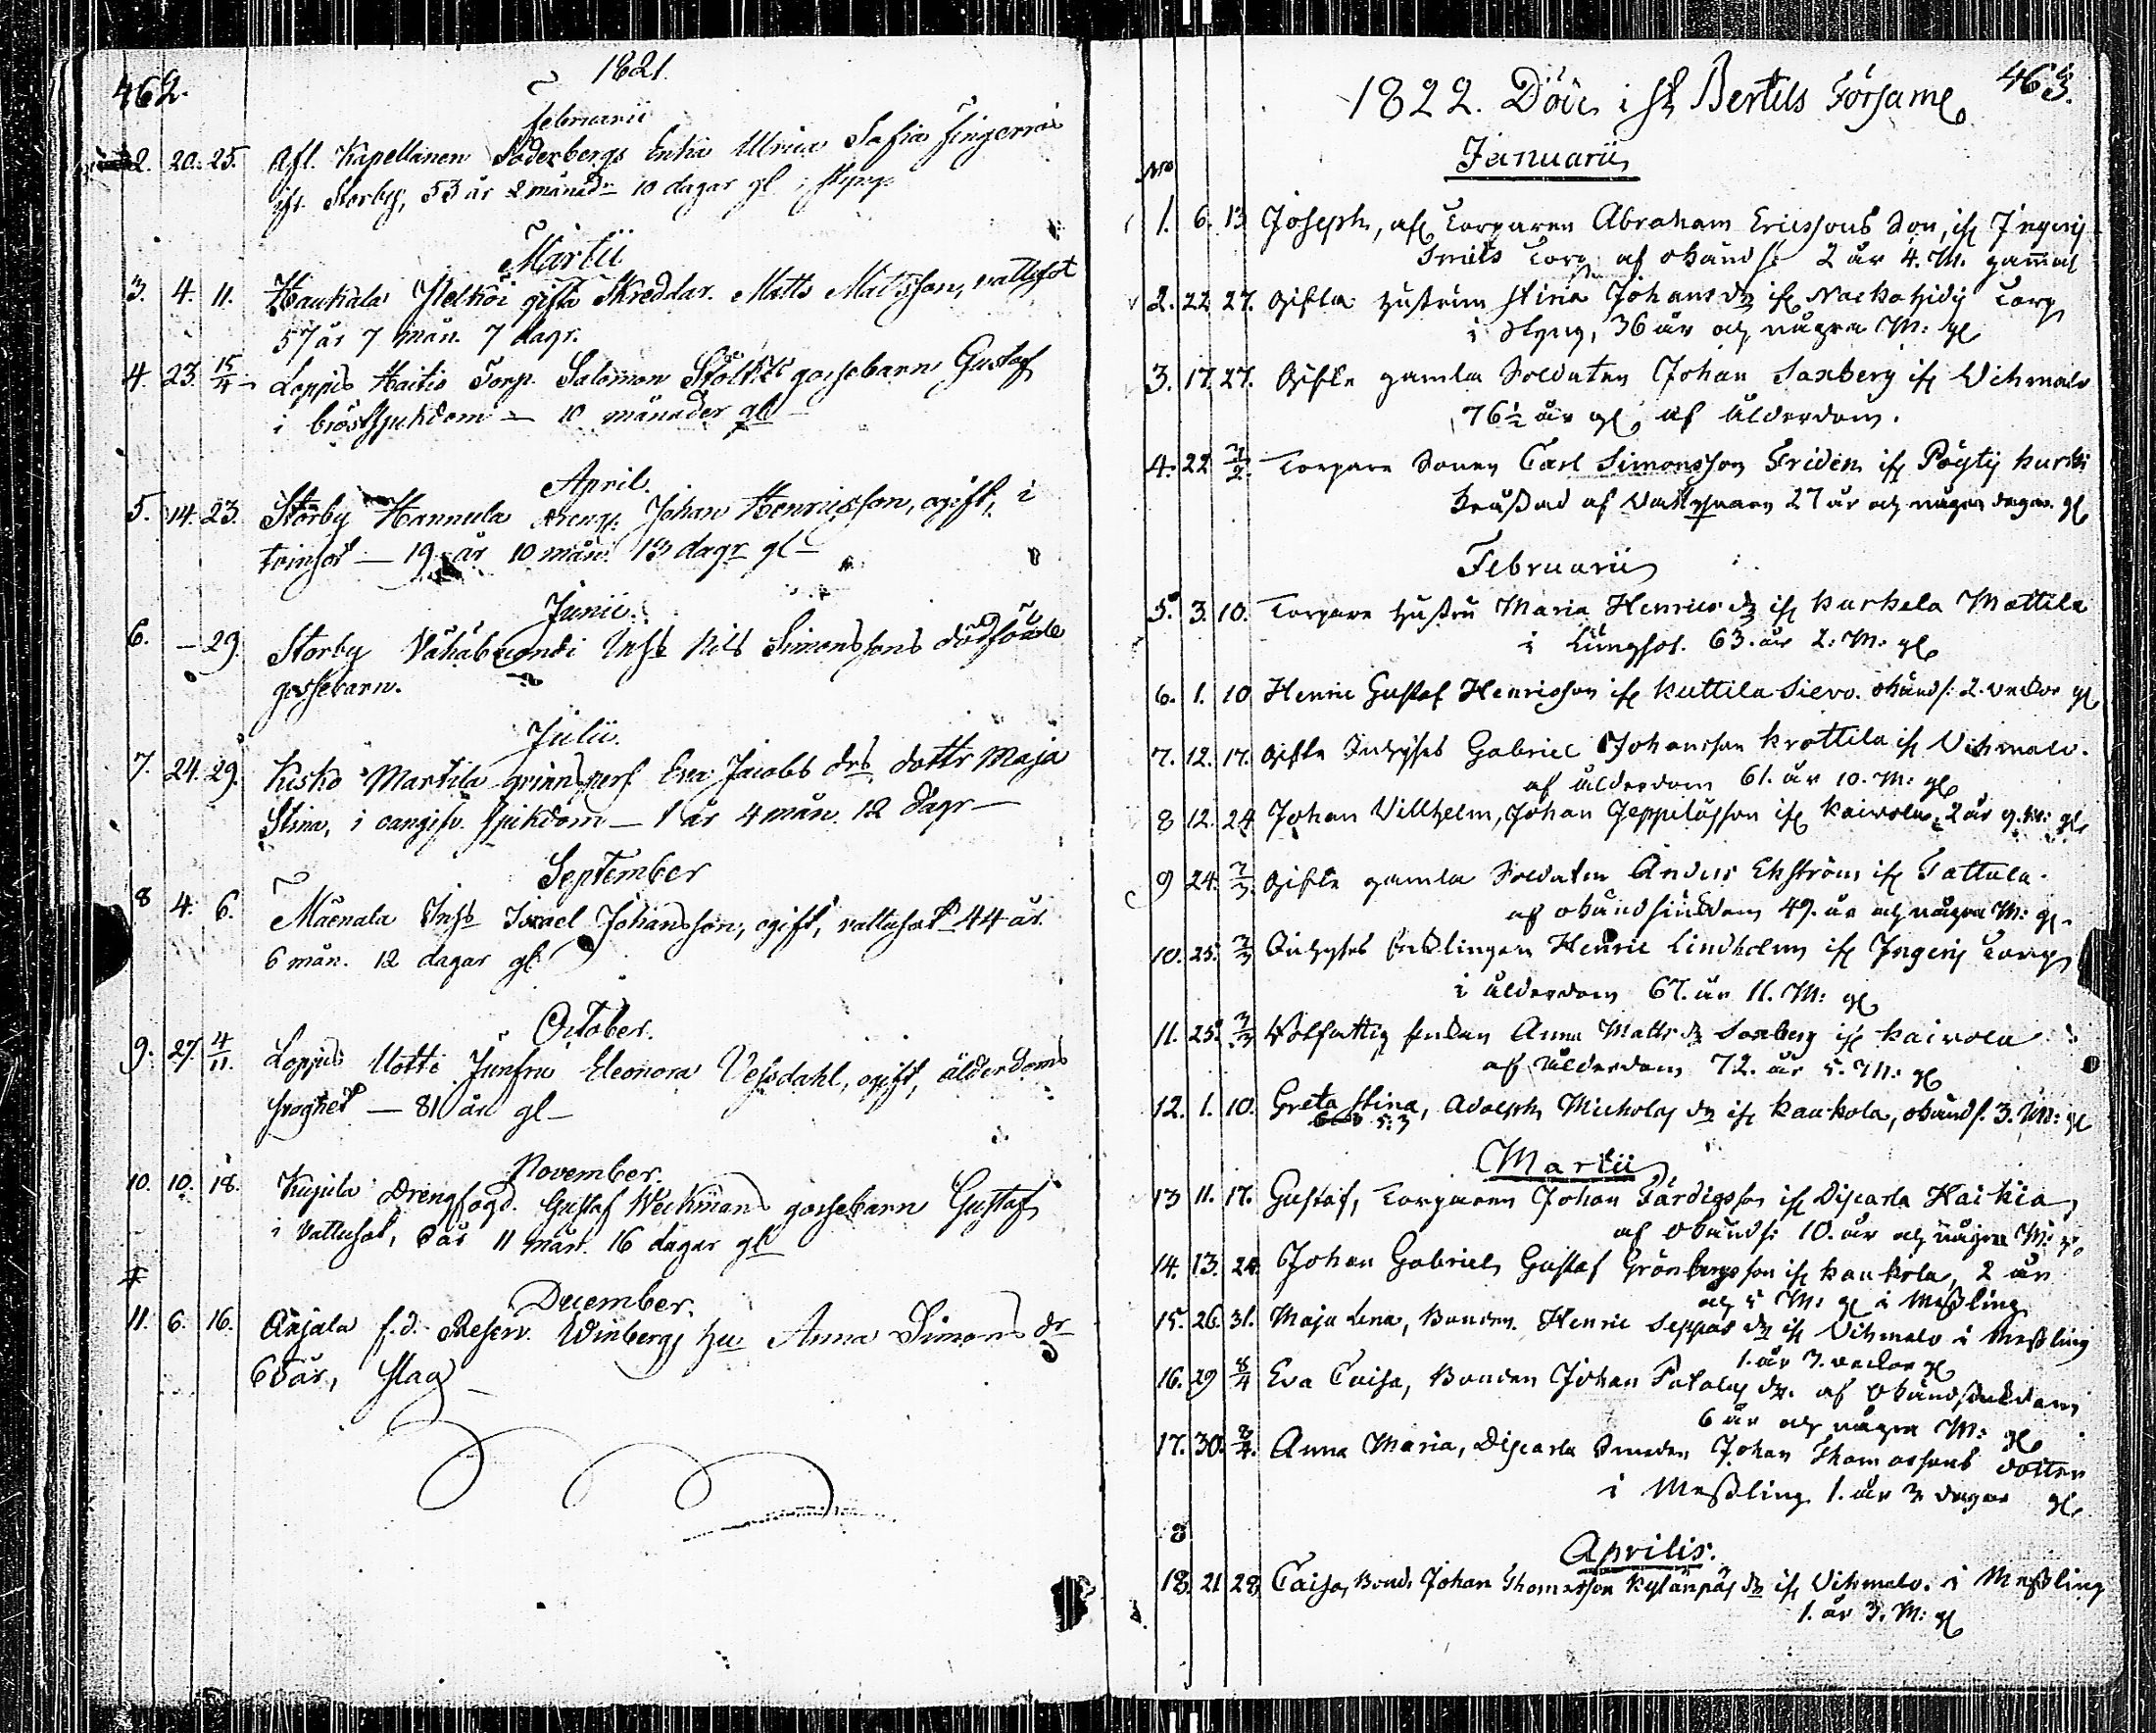 462.
1821.
Februarii
2. 20. 25. Afl. Kapellanen Söderbergs Enka Ulrica Safia
ifr. Storby, 53 år 2 månadr 10 dagar gl i styng
Martii
3. 4. 11. Kaukala gifta Skreddar. Matts Mattsson, vattusot
57 år 7 mån. 7 dagr.
4. 23. 15/4 Loppis Haitis Torp. Salomon gossebarn Gustaf
i bröstsjukdom — 10 månader gl
April.
5. 14. 23. Storby Hannula Dreng. Johan Henricsson, ogift, i
tvinsot — 19 år 10 mån. 13 dagr gl
Junii.
6. — 29. Storby Inhs Nils Simonssons dödfödde
gossebarn.
Julii.
7. 24. 29. Kisko Martila Eva Jacobs drs dottr Maja
Stina, i oangifv. sjukdom — 1 år 4 mån. 12 dagr —
September
8 4. 6. Mäenala Inhs Israel Johansson, ogift, vattusot 44 år.
6 mån. 12 dagar gl
October.
9. 27. 4/11. Loppis Uotti Junfru Eleonora Vessdahl, ogift, ålderdoms
— 81 år gl —
November.
10. 10. 18. Kujula Drengfogd. Gustaf Weckmans gossebarn Gustaf
i Vattusot, år 11 mån. 16 dagar gl
December.
11. 6. 16. Anjala f.d. Reserv. Winbergs hu Anna Simons dr
år, Slag
463.
1822. Döde i St Bertils Församl
Januarii
No
1. 6. 13 Joseph, afl Torparen Abraham Ericssons Son, ifr Ingeris
Torp af okänd s: 2 år 4. M. gammal
2. 22 27. Gifta hustrun Stina Johans dr ifr Torp
i styng, 36 år och några M: gl
3. 17 27. Gifte gamla Soldaten Johan Saxberg ifr Vihmalo
76½ år gl af ålderdom.
4. 22 7/2. Torpare Sonen Carl Simonsson Friden ifr Pöyty kurki
af 27 år och några dagar gl
Februarii
5. 3. 10. Torpare hustru Maria Henrics dr ifr Karkela Mattila
i Lungsot. 63. år 2. M: gl
6. 1. 10 Henric Gustaf Henricsson ifr Kuttila Sievo. okänd s: 2. veckor gl
7. 12. 17. Gifte Inhyses Gabriel Johansson Krottila ifr Vihmalo.
af ålderdom 61. år 10. M: gl
8 12. 24 Johan Villhelm, Johan ifr Kaivola, 2 år M: gl
9 24. 3/3. Gifte gamla Soldaten Anders Ekström ifr Tattula.
af okänd sjukdom 49. år och några M: gl.
10. 25. 3/3 Inhyses Enklingen Henric Lindholm ifr Ingeris Torp
i ålderdom 67. år 11. M: gl
11. 25. 3/3 Utfattig Enkan Anna Matts dr Saxberg ifr Kaivola
af ålderdom 72. år 5. M: gl
12. 1. 10. Greta Stina, Adolph dr ifr Kaukola, okänd s. 3. M: gl
5:3
Martii
13 11. 17. Gustaf, Torparen Johan Färdigsson ifr Discarla Haikia
af okänd s: 10. år och några M: gl
14. 13. 24 Johan Gabriel, Gustaf Grönbergs son ifr Kaukola, 2 år
och 5 M: gl i Meßling
15. 26. 31. Maja Lena, Bonden Henric Seppäs dr ifr Vihmalo i Meßling
1. år 3. veckor gl
16. 29 8/4 Eva Caisa, Bonden Johan dr. af okänd sjukdom
6 år och några M: gl
17. 30. 8/4. Anna Maria, Discarla Smeden Johan Thomassons dotter
i Meßling 1. år 3 dagar gl
8
Aprilis.
18. 21 28 Caisa, Bond. Johan Thomasson Kylänpäs dr ifr Vihmalo. i Meßling
1. år 3. M: gl